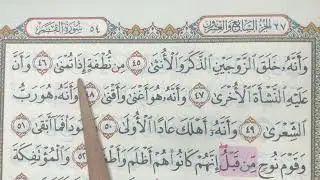 ٢٧ الجزء السابع والعشرون سورة القمر ٥٤
وَأَنَّهُ خَلَقَ الزَّوْجَيْنِ الذَّكَرَ وَالْأُنثَى ٤٥ مِن نُّطْفَةٍ إِذَا تُمْنَى ٤٦ وَأَنَّ
عَلَيْهِ النَّشْأَةَ الْأُخْرَى ٤٧ وَأَنَّهُ هُوَ أَغْنَى وَأَقْنَى ٤٨ وَأَنَّهُ هُوَ رَبُّ
الشِّعْرَى ٤٩ وَأَنَّهُ أَهْلَكَ عَادًا الْأُولَى ٥٠ وَثَمُودَا فَمَا أَبْقَى ٥١
وَقَوْمَ نُوحٍ مِّن قَبْلُ إِنَّهُمْ كَانُوا هُمْ أَظْلَمَ وَأَطْغَى ٥٢ وَالْمُؤْتَفِكَةَ